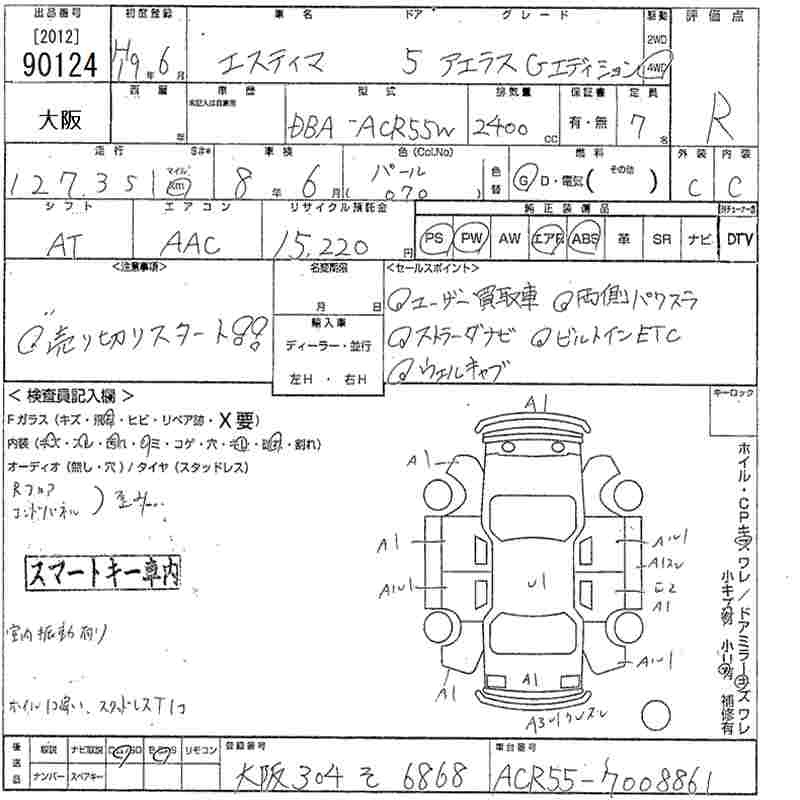 出品番号 初度登録 車名 ドア グレード 駆動 評価点
[2012] 90124 H19年6月 エスティマ 5 アエラス Gエディション 2WD 4WD R
大阪 車歴 型式 排気量 保証書 定員
名記入は自家用
年 DBA-ACR55W 2400cc 有・無 7名
走行 マイル Km 車検 色(Col.No) 色替 燃料 外装 内装
127,351 8年6月 パール (070) G D・電気( その他 ) C C
シフト エアコン リサイクル預託金 純正装備品
AT AAC 15,220円 PS PW AW エアB ABS 革 SR ナビ DTV
<注意事項> 名変期限 <セールスポイント>
月 日
売り切りスタート!!
輸入車
ディーラー・並行
左H ・ 右H
ユーザー買取車 両側パワスラ
ストラーダナビ ビルトインETC
ウェルキャブ
キーロック
<検査員記入欄>
Fガラス(キズ・飛石・ヒビ・リペア跡・X要)
内装(キズ・スレ・汚れ・シミ・コゲ・穴・割れ)
オーディオ(無し・穴)/タイヤ(スタッドレス)
Rフロア
エンドパネル
スマートキー車内
室内振動有り
スタッドレス
A1
A1
A1
A1
U1
A1
E2
A1
A1
A1
ホイル・CPキズワレ/ドアミラーキズワレ
小キズ有 小U有 補修有
後送品 取説 ナビ取説 リモコン 登録番号 車台番号
ナンバー スペアキー 大阪 304 そ 6868 ACR55-7008861